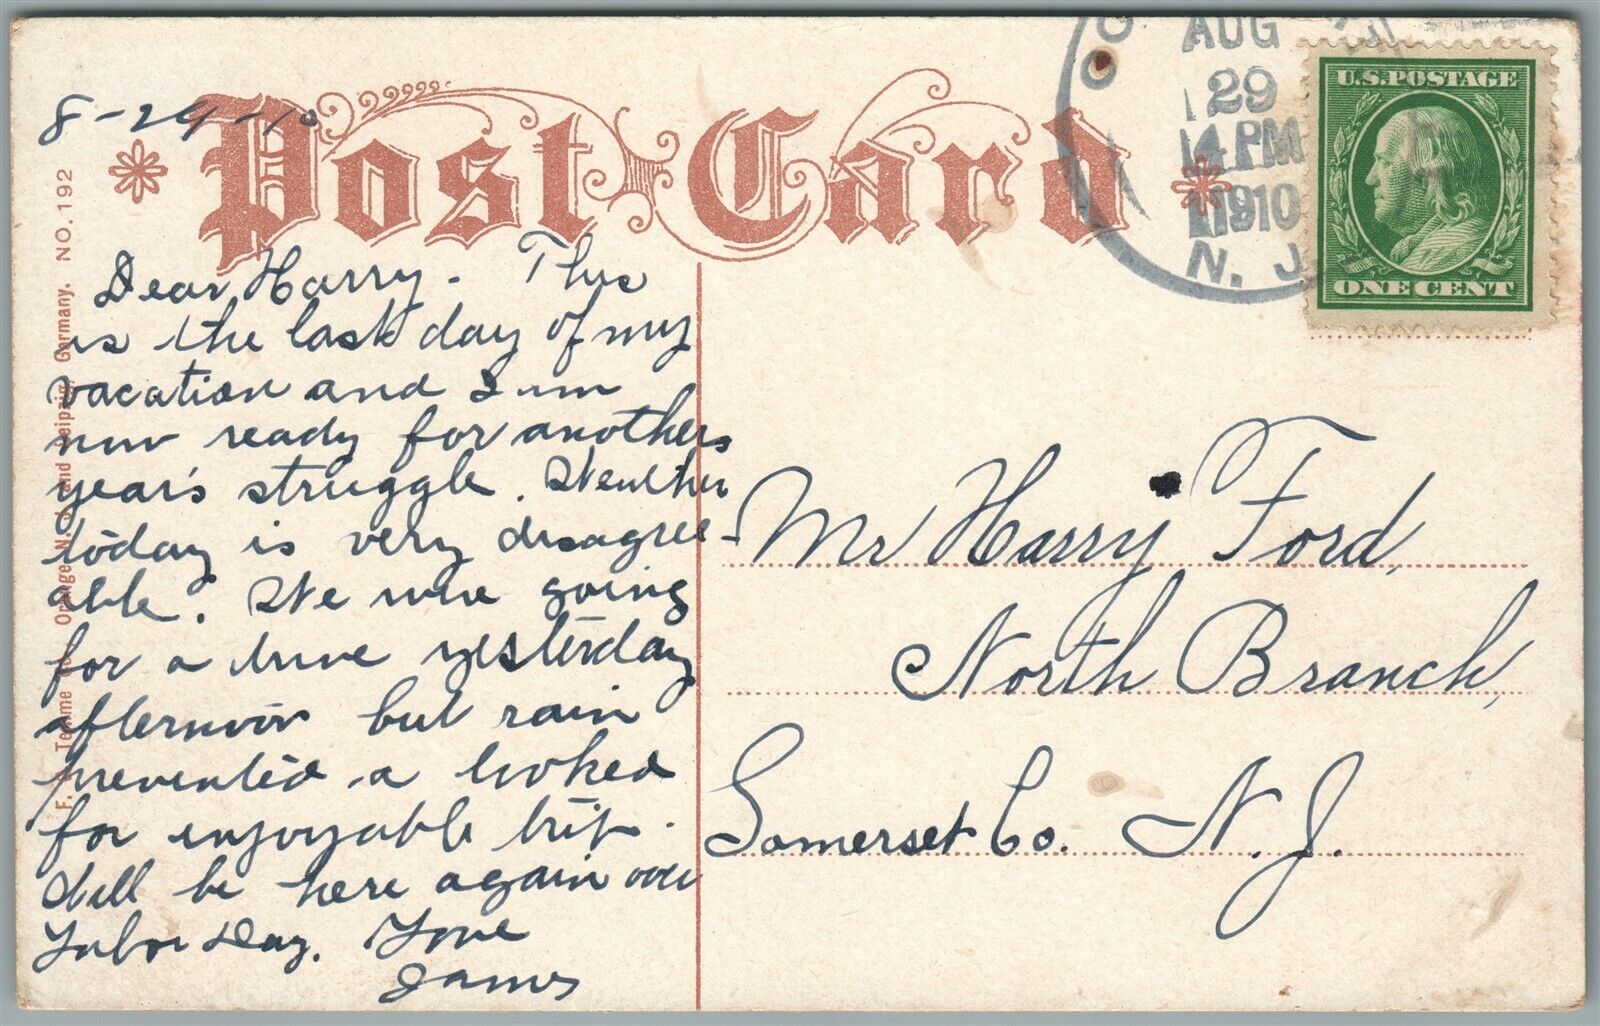 8-29-10
Post Card
AUG
29
4 PM
1910
N. J.
U.S. POSTAGE
ONE CENT
NO. 192
Orange N. J. and Leipzig, Germany.
Dear Harry. This
is the last day of my
vacation and I am
now ready for anothers
year's struggle. Weather
today is very disagree-
able. We were going
for a drive yesterday
afternoon but rain
prevented a looked
for enjoyable trip.
Will be here again over
Labor Day. Love
James
Mr Harry Ford,
North Branch,
Somerset Co. N. J.